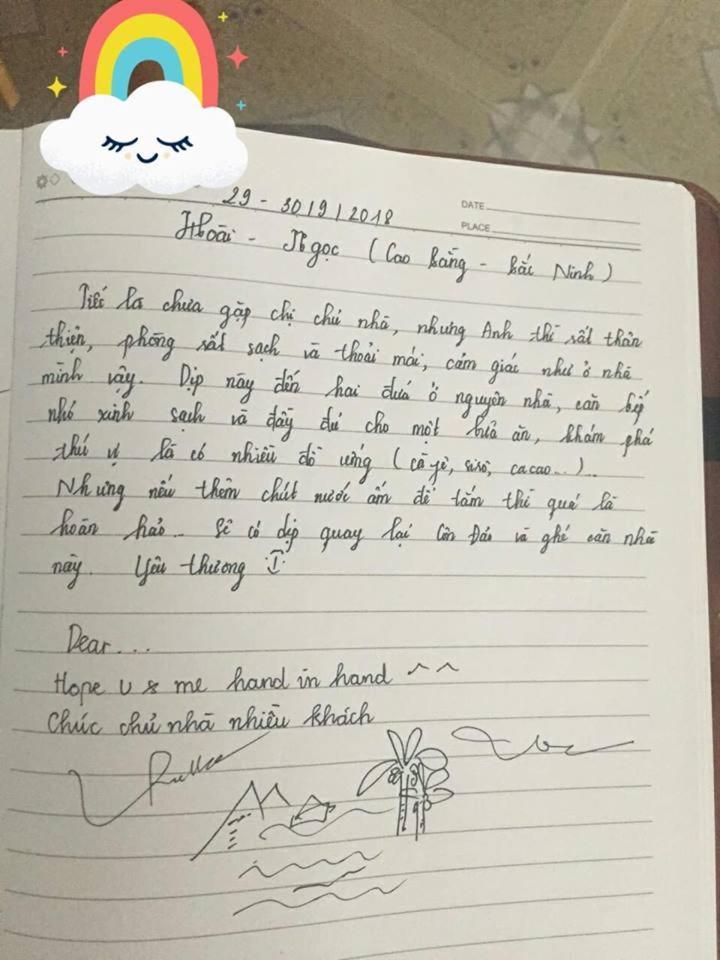 DATE
PLACE
29 - 30/9/2018
Hoài - Ngọc (Cao Bằng - Bắc Ninh)
Tiếc là chưa gặp chị chủ nhà, nhưng Anh thì rất thân
thiện, phòng rất sạch và thoải mái, cảm giác như ở nhà
mình vậy. Dịp này đến hai đứa ở nguyên nhà, căn bếp
nhỏ xinh sạch và đầy đủ cho một bữa ăn, khám phá
thú vị là có nhiều đồ uống (cà fê, siro, cacao...)...
Nhưng nếu thêm chút nước ấm để tắm thì quá là
hoàn hảo.. Sẽ có dịp quay lại Côn Đảo và ghé căn nhà
này. Yêu thương
Dear...
Hope U & me hand in hand ^^
Chúc chủ nhà nhiều khách